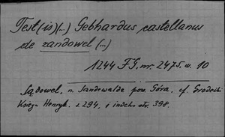 Test(is)(...) Gebhardus castellanus
de candowel (...)
1244 FS. nr. 2475. u. 10
Sądowel, n. Sandewalde pow. Góra, cf. Grodech
Księg. Henryk. s 294, s indeks str. 398.